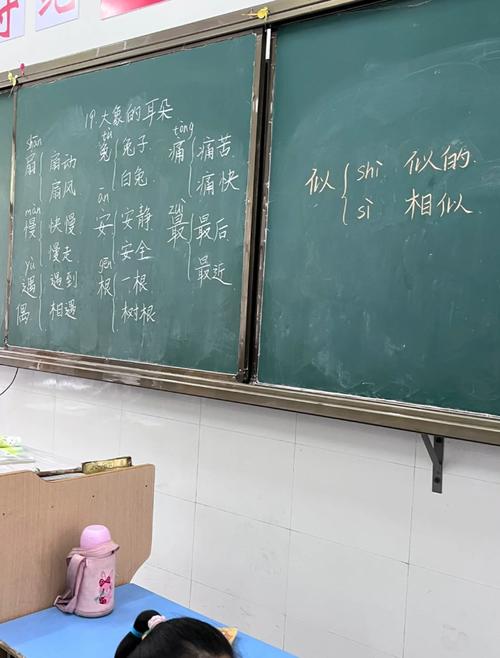 19.大象的耳朵
shān 扇 扇动
扇风
màn 慢 快慢
慢走
yù 遇 遇到
偶 相遇
tù 兔 兔子
白兔
ān 安 安静
安全
gēn 根 一根
树根
tòng 痛 痛苦
痛快
zuì 最 最后
最近
似 shì 似的
sì 相似